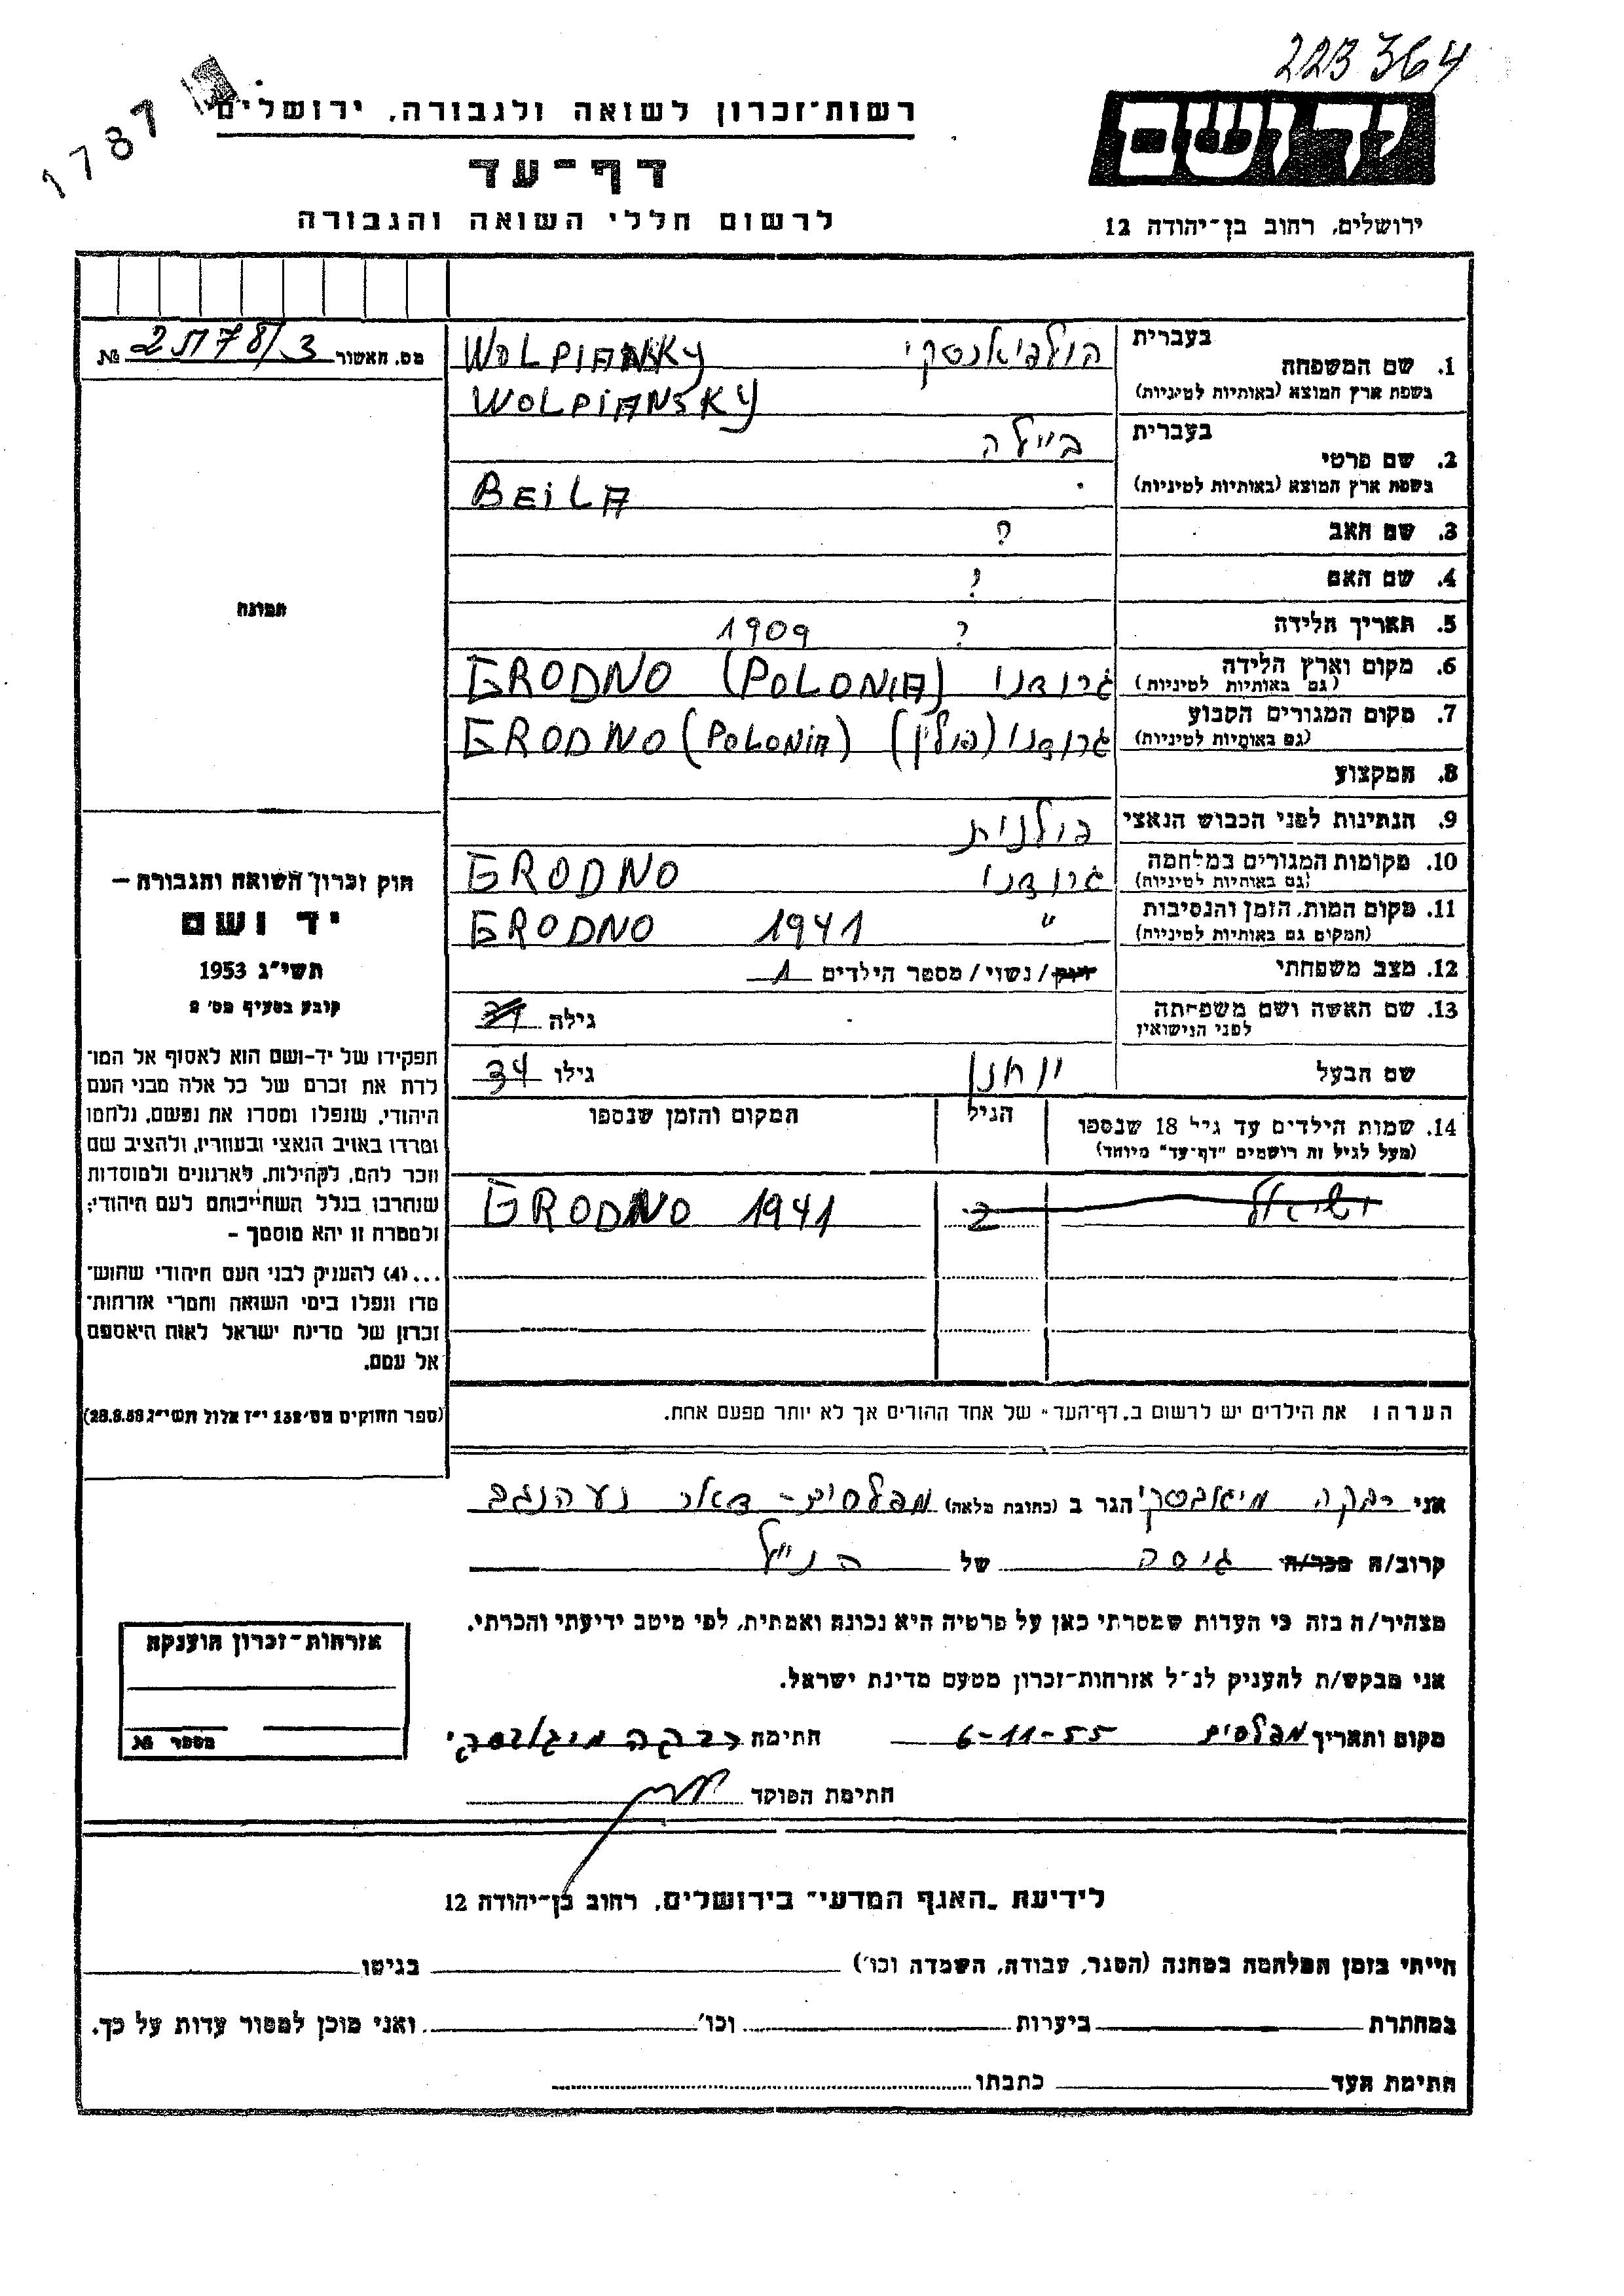 223364
1787
רשות־זכרון לשואה ולגבורה, ירושלים
יד ושם
דף־עד
לרשום חללי השואה והגבורה
ירושלים, רחוב בן־יהודה 12
מס. האשור № 3
1. שם המשפחה
בעברית
וולפיאנסקי
WOLPIANSKY
בשפת ארץ המוצא (באותיות לטיניות)
WOLPIANSKY
2. שם פרטי
בעברית
ביילה
בשפת ארץ המוצא (באותיות לטיניות)
BEILA
3. שם האב ?
4. שם האם ?
5. תאריך הלידה ? 1909
6. מקום וארץ הלידה גרודנו GRODNO (POLONIA)
(גם באותיות לטיניות)
7. מקום המגורים הקבוע גרודנו (פולין) GRODNO (POLONIA)
(גם באותיות לטיניות)
8. המקצוע
9. הנתינות לפני הכבוש הנאצי פולנית
10. מקומות המגורים במלחמה גרודנו GRODNO
(גם באותיות לטיניות)
11. מקום המות, הזמן והנסיבות " GRODNO 1941
(המקום גם באותיות לטיניות)
12. מצב משפחתי רווק/נשוי/מספר הילדים 1
13. שם האשה ושם משפחתה גילה
לפני הנישואין
שם הבעל יוחנן גילו 34
14. שמות הילדים עד גיל 18 שנספו הגיל המקום והזמן שנספו
(מעל לגיל זה רושמים "דף־עד" מיוחד)
2 GRODNO 1941
הערה: את הילדים יש לרשום ב„דף־העד" של אחד ההורים אך לא יותר מפעם אחת.
תמונה
חוק זכרון השואה והגבורה —
יד ושם
תשי"ג 1953
קובע בסעיף מס' 2
תפקידו של יד-ושם הוא לאסוף אל המו־
לדת את זכרם של כל אלה מבני העם
היהודי, שנפלו ומסרו את נפשם, נלחמו
ומרדו באויב הנאצי ובעוזריו, ולהציב שם
וזכר להם, לקהילות, לארגונים ולמוסדות
שנחרבו בגלל השתייכותם לעם היהודי;
ולמטרה זו יהא מוסמך —
...(4) להעניק לבני העם היהודי שהוש־
מדו ונפלו בימי השואה והמרי אזרחות־
זכרון של מדינת ישראל לאות היאספם
אל עמם.
(ספר החוקים מס' 132 י"ז אלול תשי"ג 28.8.53)
אני רבקה הגר ב (כתובת מלאה) מפלסים - דאר נע הנגב
קרוב/ה מכר/ה גיסה של הנ"ל
מצהיר/ה בזה כי העדות שמסרתי כאן על פרטיה היא נכונה ואמתית, לפי מיטב ידיעתי והכרתי.
אני מבקש/ת להעניק לנ"ל אזרחות־זכרון מטעם מדינת ישראל.
מקום ותאריך מפלסים 6-11-55 חתימה רבקה
חתימת הפוקד
אזרחות־זכרון הוענקה
מספר №
לידיעת „האגף המדעי" בירושלים, רחוב בן־יהודה 12
הייתי בזמן המלחמה במחנה (הסגר, עבודה, השמדה וכו') בגיטו
במחתרת ביערות וכו' ואני מוכן למסור עדות על כך.
חתימת העד כתבתו